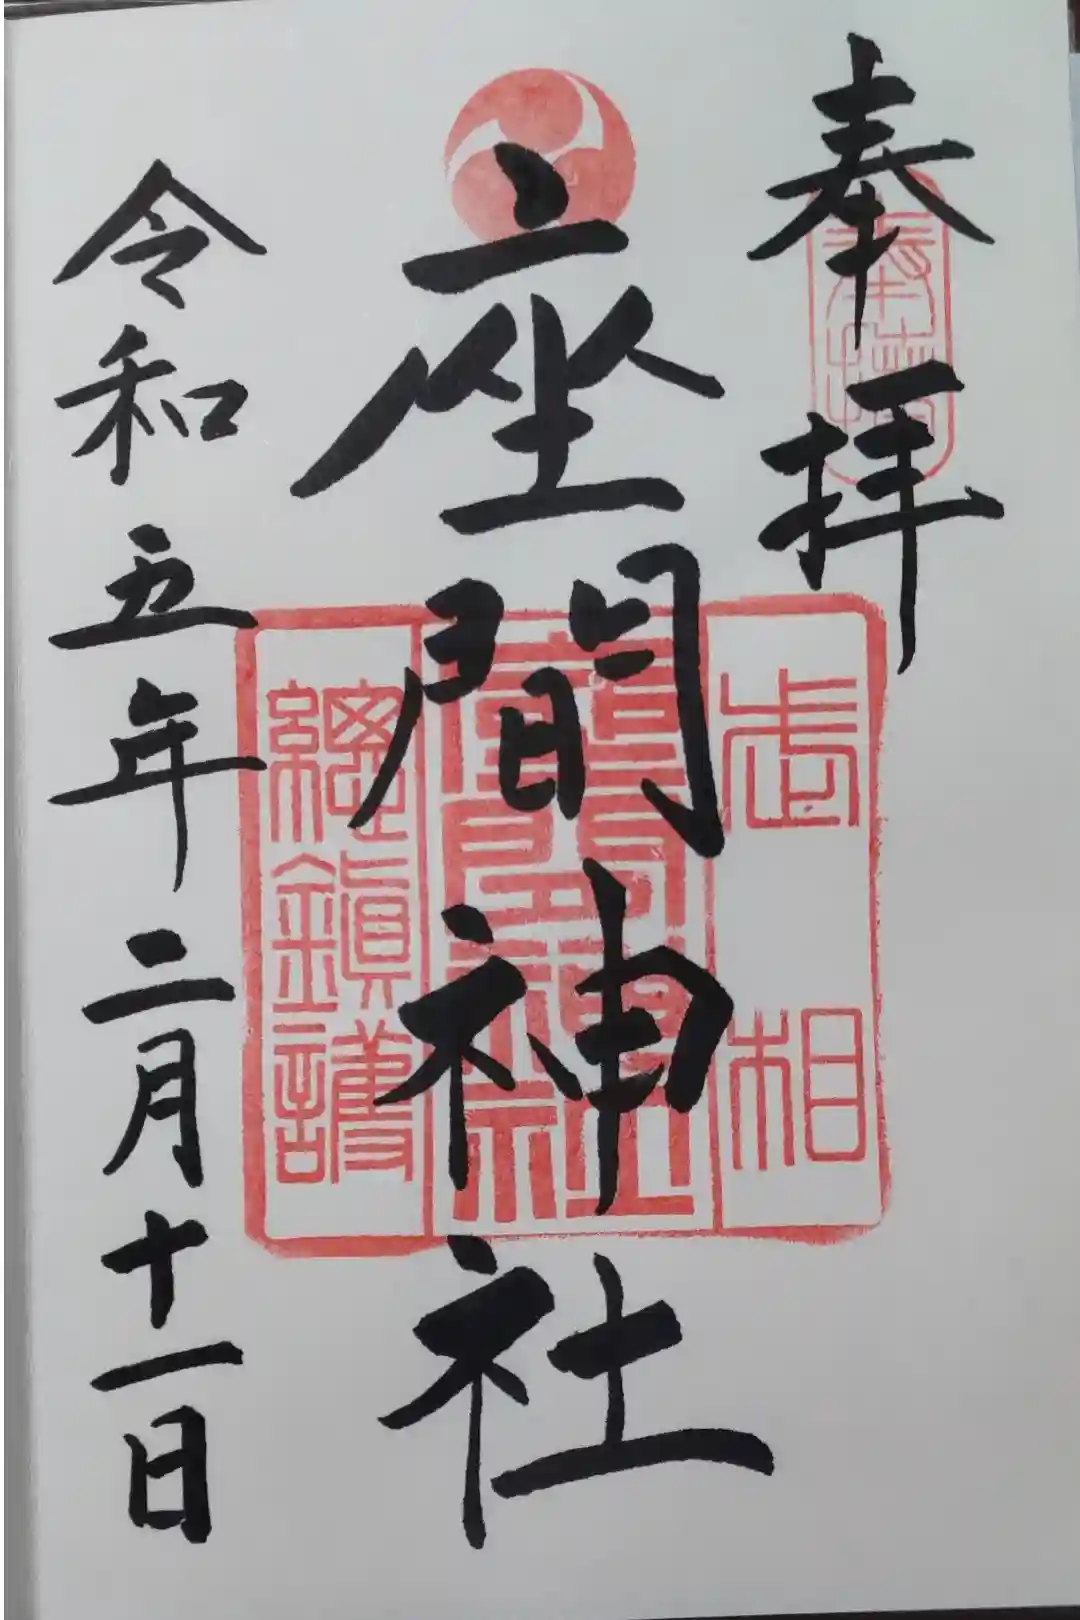 奉拝
奉拝
座間神社
相武
座間神社
總鎮護
令和五年二月十一日